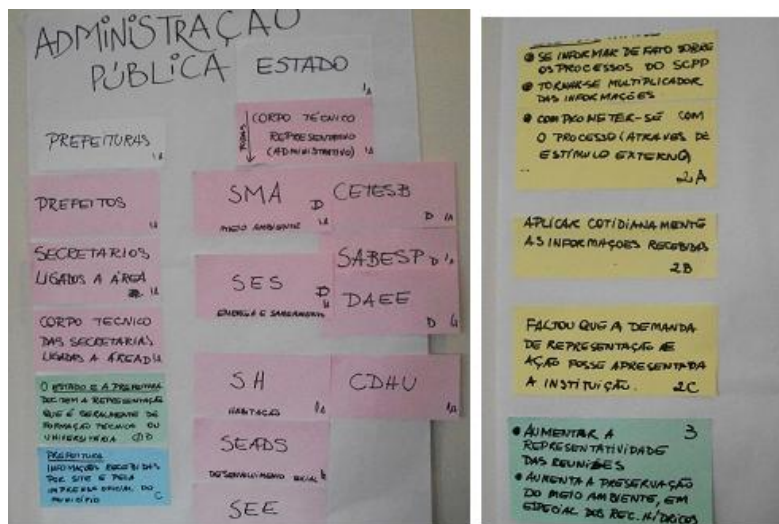 ADMINISTRAÇÃO
PÚBLICA
ESTADO
1A
PREFEITURAS
1A
CORPO TÉCNICO
REPRESENTATIVO
(ADMINISTRATIVO) 1A
PREFEITOS
1A
SECRETÁRIOS
LIGADOS A ÁREA
1A
CORPO TECNICO
DAS SECRETARIAS
LIGADAS A ÁREA
O ESTADO E A PREFEITURA
DECIDEM A REPRESENTAÇÃO
QUE É GERALMENTE DE
FORMAÇÃO TÉCNICA OU
UNIVERSITÁRIA D
PREFEITURA
INFORMAÇÕES RECEBIDAS
POR SITE E PELA
IMPRENSA OFICIAL DO
MUNICÍPIO C
SMA D
1A
MEIO AMBIENTE
CETESB
D 1A
SES D
ENERGIA E SANEAMENTO
SABESP D 1A
DAEE
D
SH
HABITAÇÃO 1A
CDHU
1A
SEADS
DESENVOLVIMENTO SOCIAL
SEE
• SE INFORMAR DE FATO SOBRE
OS PROCESSOS DO SCPP
• TORNAR-SE MULTIPLICADOR
DAS INFORMAÇÕES
• COMPROMETER-SE COM
O PROCESSO (ATRAVÉS DE
ESTÍMULO EXTERNO)
2A
APLICAR COTIDIANAMENTE
AS INFORMAÇÕES RECEBIDAS
2B
FALTOU QUE A DEMANDA
DE REPRESENTAÇÃO E
AÇÃO FOSSE APRESENTADA
A INSTITUIÇÃO. 2C
• AUMENTAR A 3
REPRESENTATIVIDADE
DAS REUNIÕES
• AUMENTA A PRESERVAÇÃO
DO MEIO AMBIENTE, EM
ESPECIAL DOS REC. HÍDRICOS